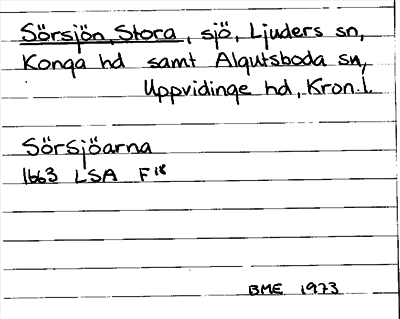 Sörsjön, Stora, sjö, Ljuders sn,
Konga hd samt Algutsboda sn,
Uppvidinge hd, Kron.l.
Sörsjöarna
1663 LSA F 18
BME 1973